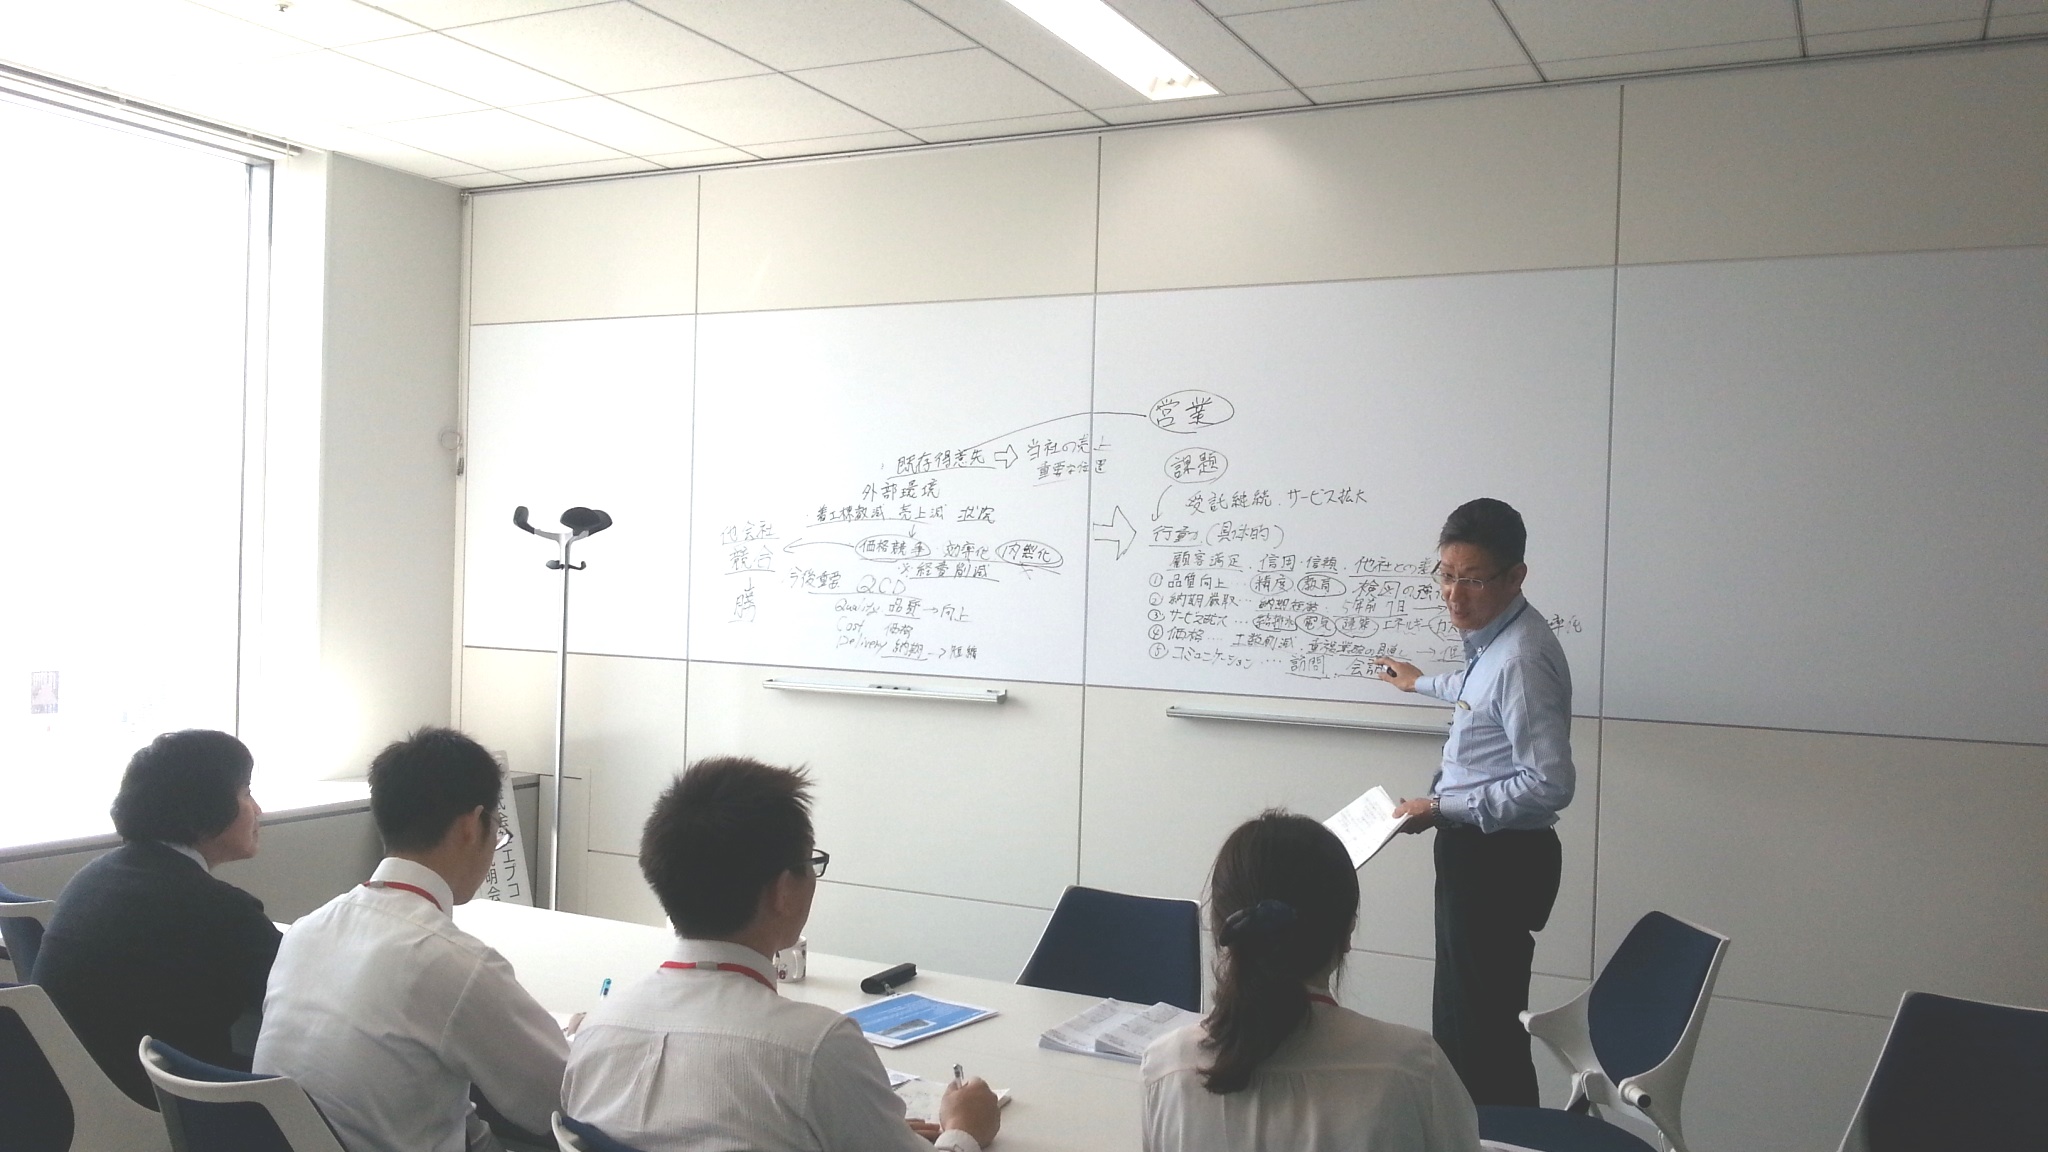 営業
既存得意先 ⇨ 当社の売上
重要な位置
外部環境
・着工棟数減 売上減 状況
価格競争 効率化 内製化
※経費削減
他会社
競合
勝
今後重要 QCD
Quality 品質→向上
Cost 価格
Delivery 納期→短縮
課題
受託継続.サービス拡大
行動(具体的)
顧客満足.信用・信頼.他社との差
①品質向上…精度 教育 検図の強
②納期厳取…納期 7日→
③サービス拡大…給排水 電気 建築 エネルギー ガス
④価格…工数削減.業務の見直し→低
⑤コミュニケーション…訪問.会議
エプコ
明会